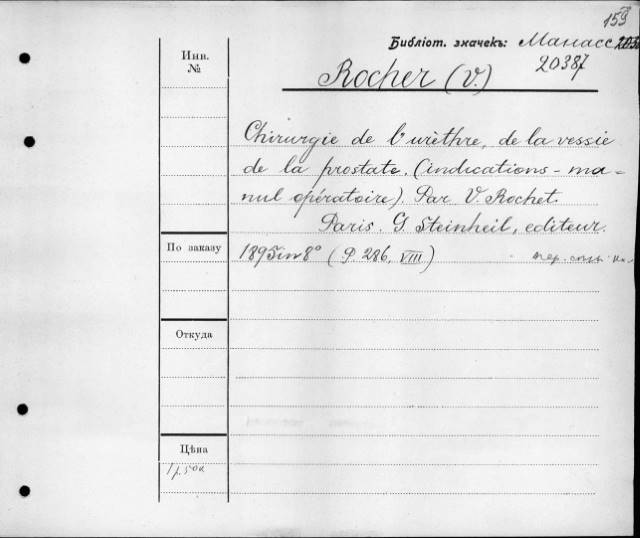 159
Библіот. значекъ: Манасс
20387
Инв.
№
Rocher (V.)
Chirurgie de l'urèthre, de la vessie
de la prostate. (indications - ma-
nul opératoire). Par V. Rochet.
Paris. G. Steinheil, editeur.
По заказу
1895 in 8° (P. 286, VIII)
Откуда
Цѣна
1р. 50к